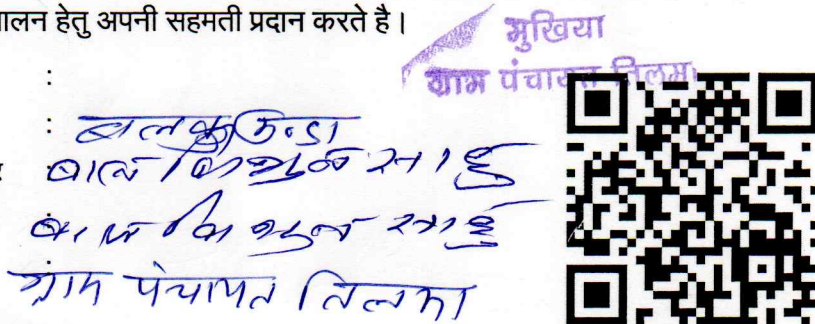 ालन हेतु अपनी सहमती प्रदान करते है।
मुखिया
ग्राम पंचायत तिलमा
:
: बालकुण्डा
साहु
साहु
ग्राम पंचायत तिलमा